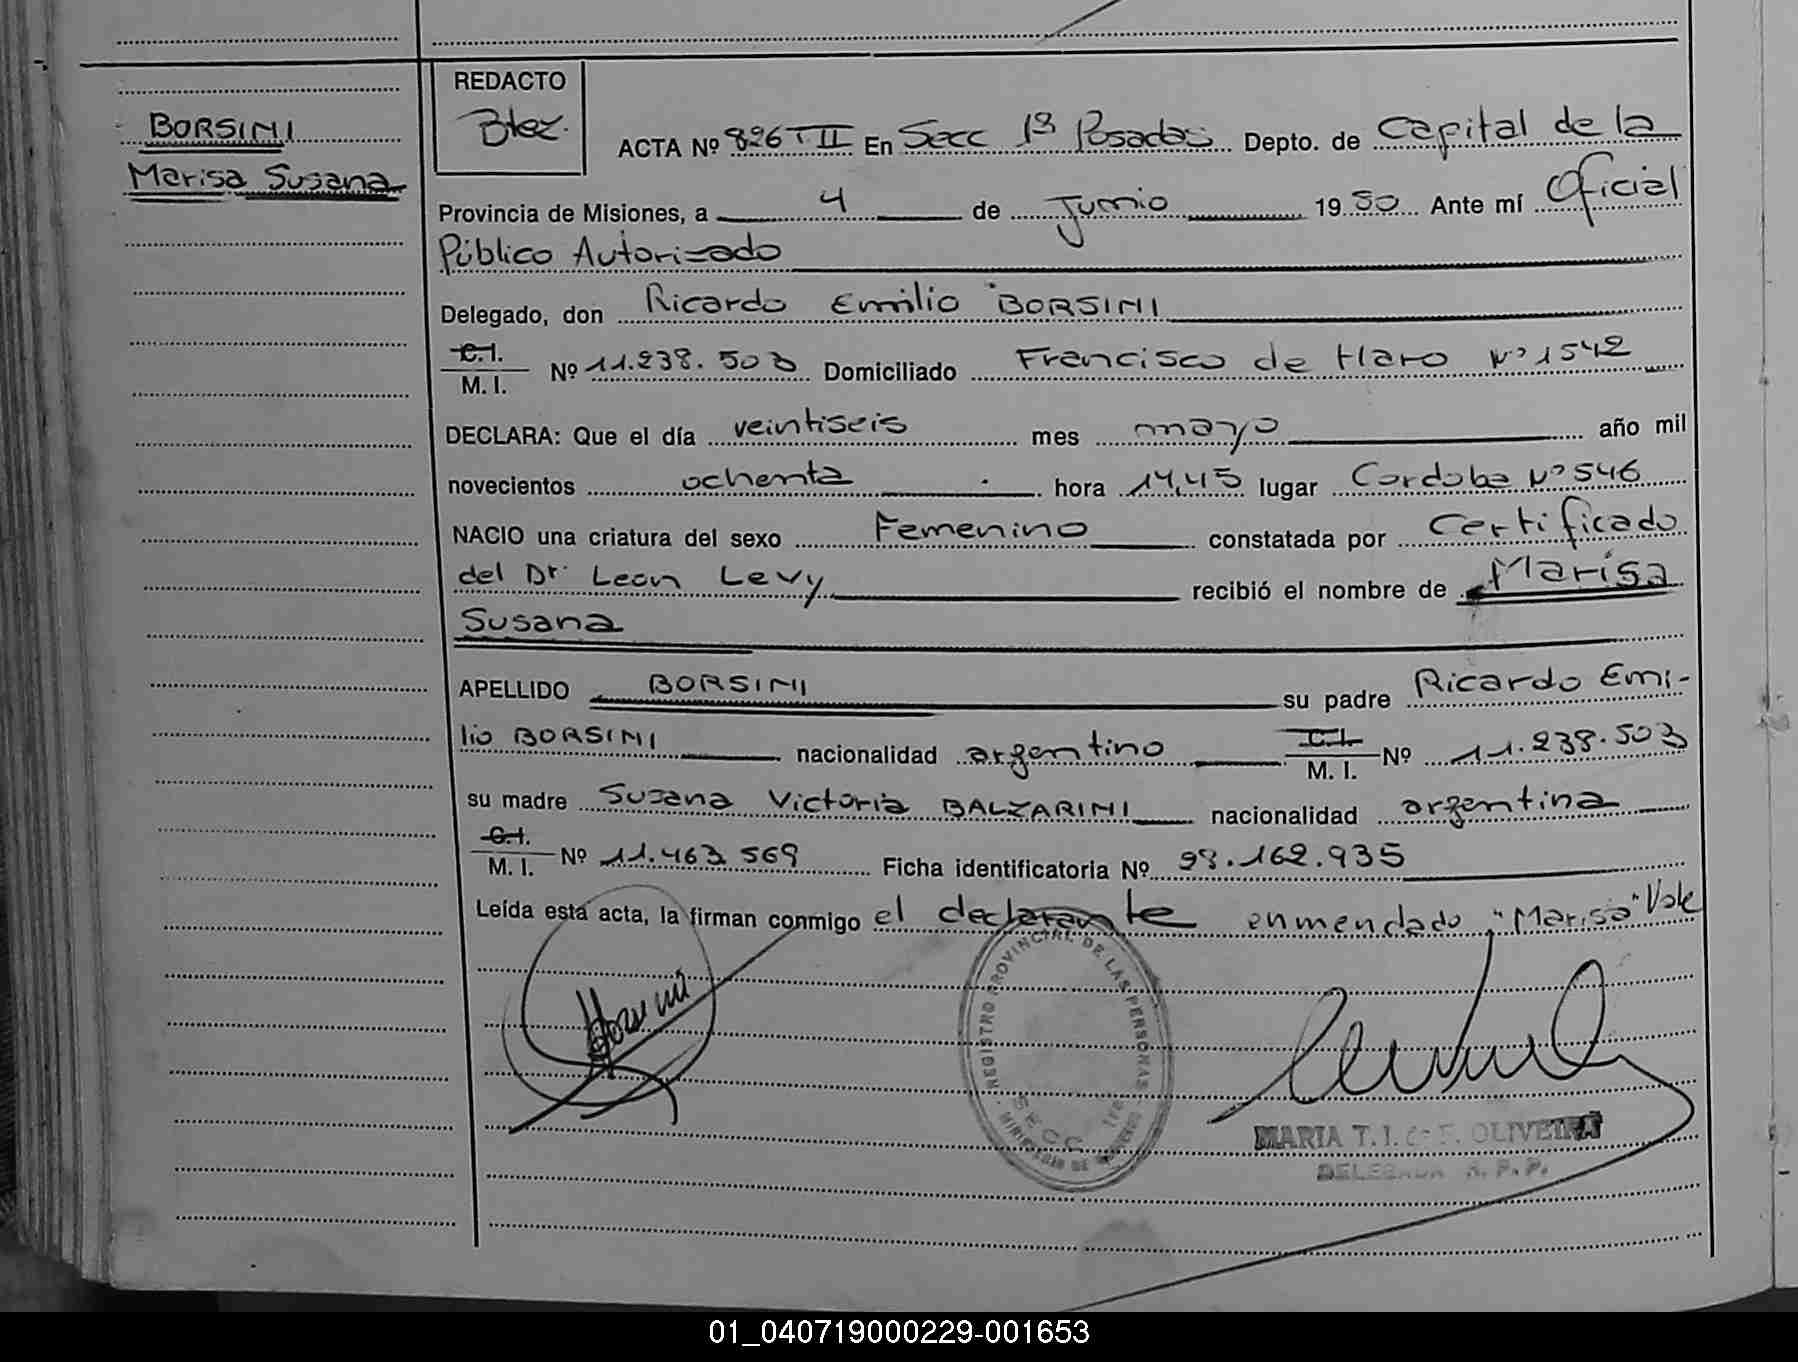 BORSINI
Marisa Susana
REDACTO
Btez.
ACTA Nº 826 T II En Secc 1ª Posadas Depto. de Capital de la
Provincia de Misiones, a 4 de Junio 1980 Ante mí Oficial
Público Autorizado
Delegado, don Ricardo Emilio BORSINI
C.I.
M. I. Nº 11.238.503 Domiciliado Francisco de Haro Nº 1542
DECLARA: Que el día veintiseis mes mayo año mil
novecientos ochenta hora 14,45 lugar Cordoba Nº 546
NACIO una criatura del sexo Femenino constatada por Certificado
del Dr. Leon Levy recibió el nombre de Marisa
Susana
APELLIDO BORSINI su padre Ricardo Emi-
lio BORSINI nacionalidad argentino C.I. M. I. Nº 11.238.503
su madre Susana Victoria BALZARINI nacionalidad argentina
C.I.
M. I. Nº 11.463.569 Ficha identificatoria Nº 98.162.935
Leída esta acta, la firman conmigo el declarante enmendado "Marisa" Vale
REGISTRO PROVINCIAL DE LAS PERSONAS
SECC. 1ra
MINISTERIO DE
MARIA T. I. OLIVEIRA
DELEGADA R. P. P.
01_040719000229-001653